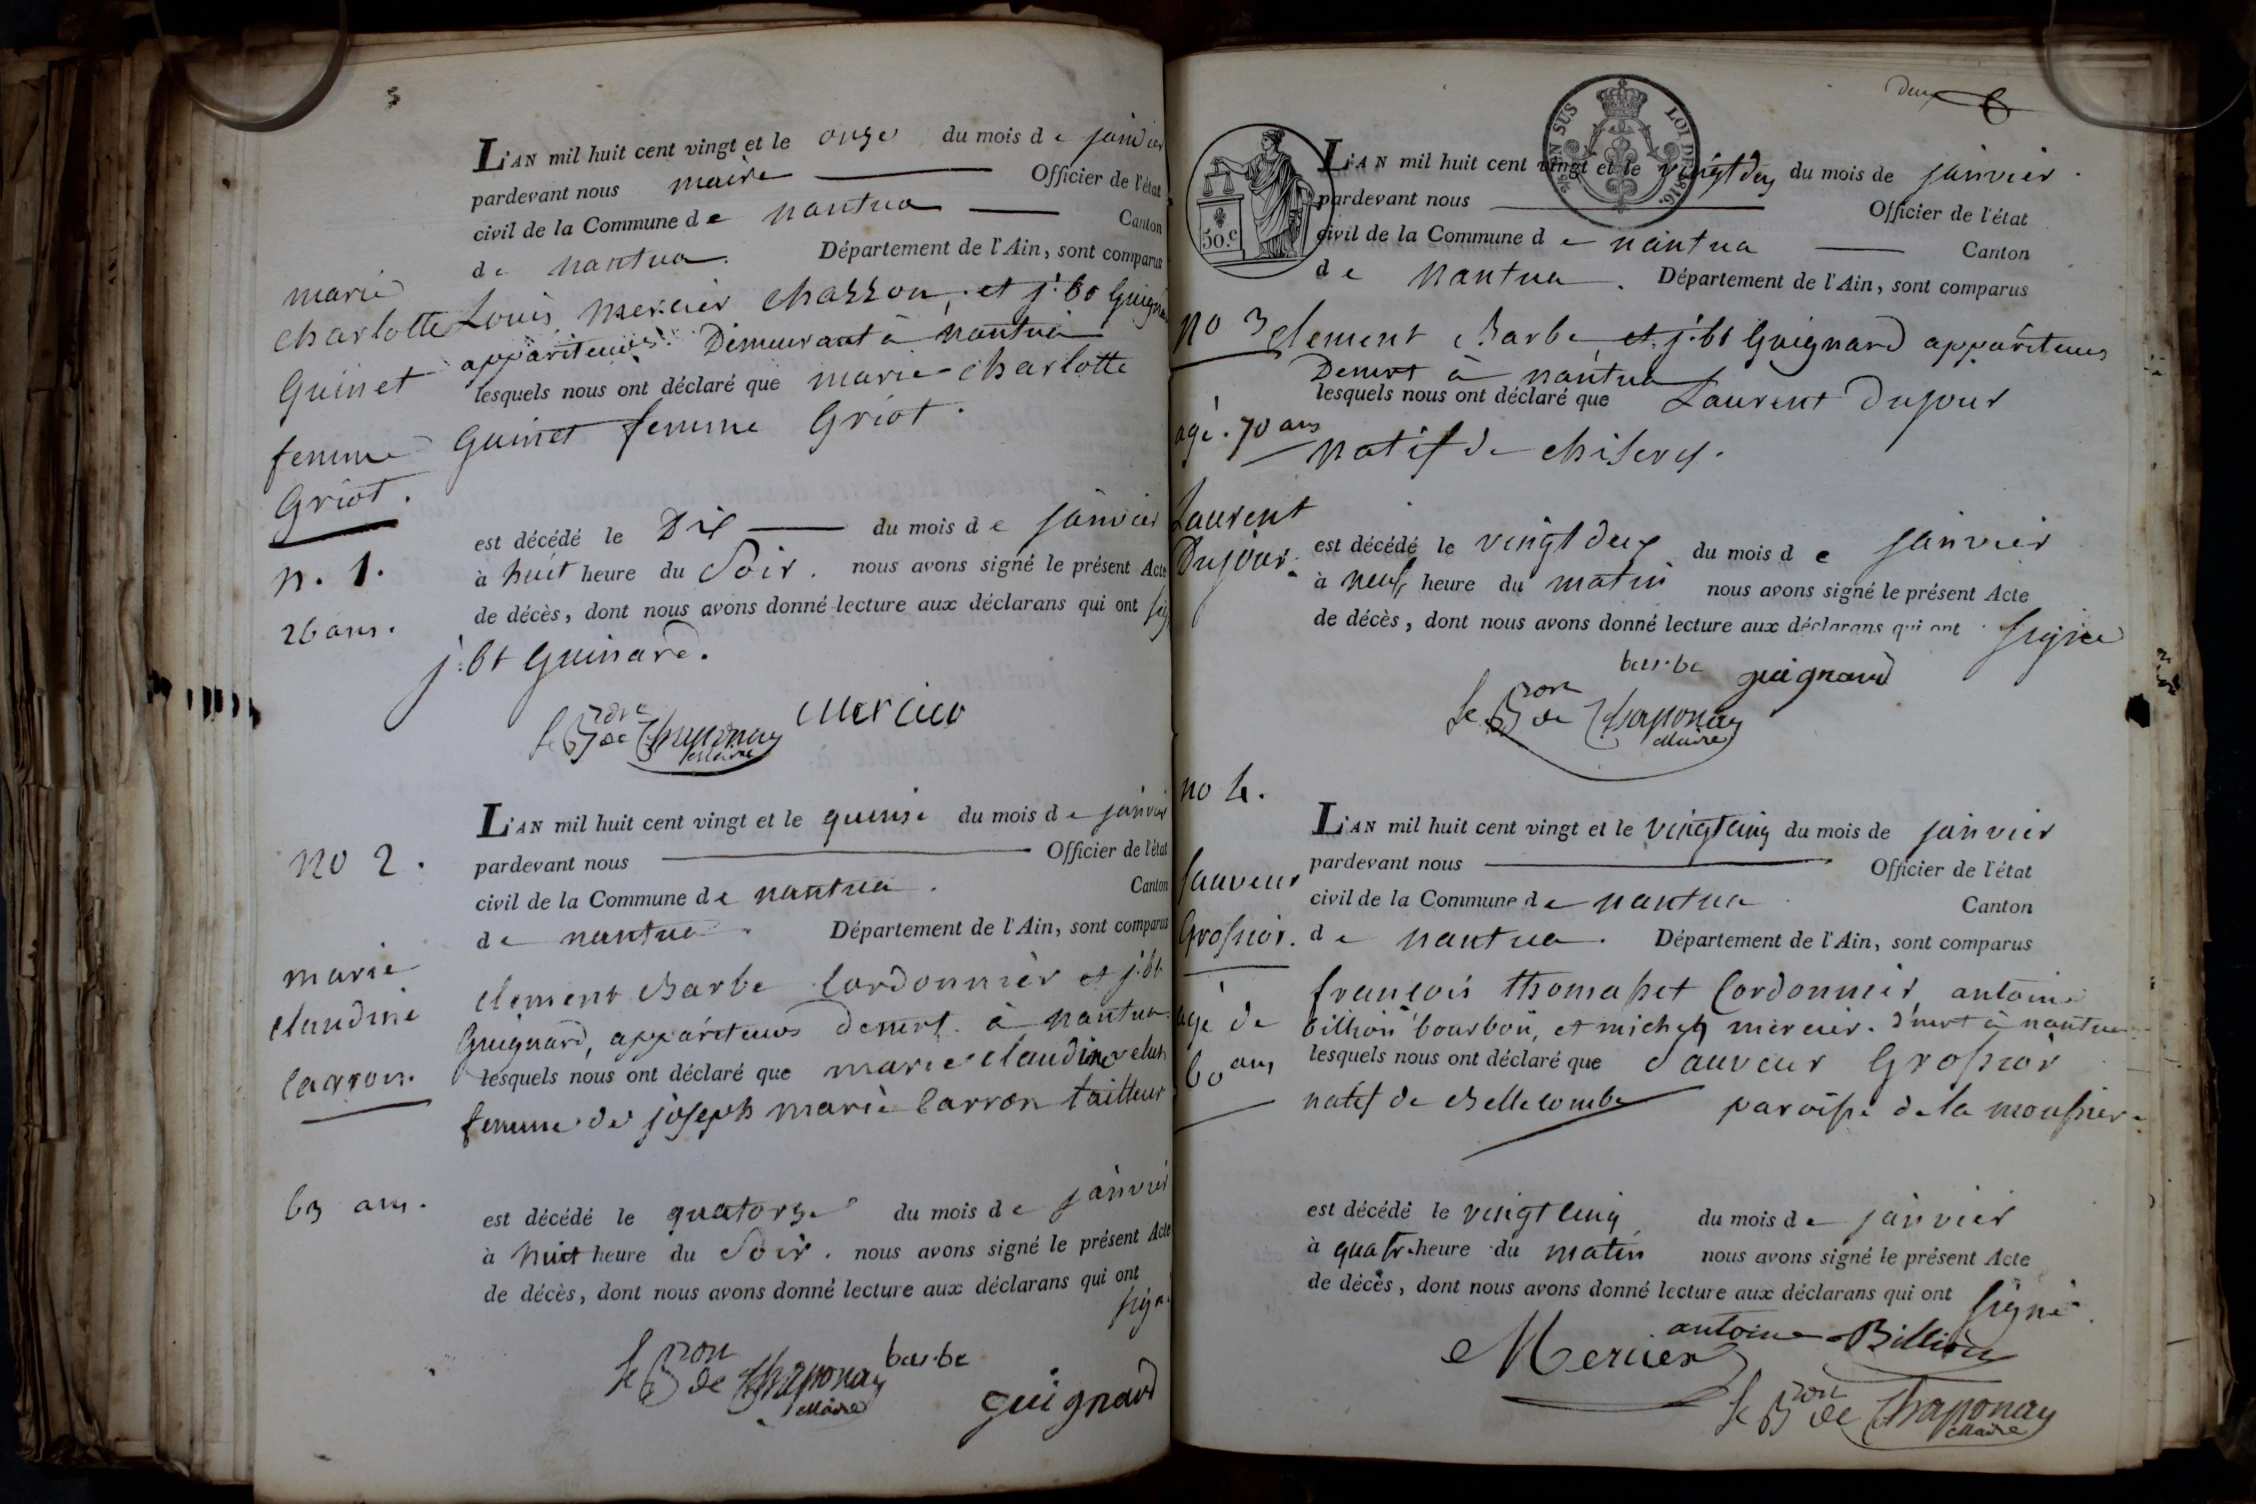 L'AN mil huit cent vingt et le onze du mois de janvier
pardevant nous maire Officier de l'état
civil de la Commune de nantua Canton
de nantua. Département de l'Ain, sont comparus
Louis mercier chazzon, et j. bt Guign
appariteurs. Demeurant à nantua
lesquels nous ont déclaré que marie charlotte
Guinet femme Griot.
marie
charlotte
Guinet
femme
Griot.
n. 1.
26 ans.
est décédé le Dix du mois de janvier
à huit heure du Soir. nous avons signé le présent Acte
de décès, dont nous avons donné lecture aux déclarans qui ont sig
j. bt Guinard.
mercier
le Bon de Chaponay
Maire
no 2.
marie
claudine
Carron.
63 ans.
L'AN mil huit cent vingt et le quinse du mois de janvier
pardevant nous Officier de l'état
civil de la Commune de nantua. Canton
de nantua. Département de l'Ain, sont comparus
clement Barbe Cordonnier et j. bt
Guignard, appariteurs demt. à nantua
lesquels nous ont déclaré que marie claudine
femme de joseph marie Carron tailleur
est décédé le quatorze du mois de janvier
à huit heure du Soir. nous avons signé le présent Acte
de décès, dont nous avons donné lecture aux déclarans qui ont
signé
le Bon de Chaponay barbe
Maire
guignard
deux 6
TIMBRE EN SUS LOI DE 1816.
50.c
L'AN mil huit cent vingt et le vingt deux du mois de janvier.
pardevant nous Officier de l'état
civil de la Commune de nantua Canton
de nantua. Département de l'Ain, sont comparus
no 3
agé. 70 ans
Laurent
Dujour.
clement Barbe, et j. bt Guignard appariteurs
Demt à nantua
lesquels nous ont déclaré que Laurent Dujour
natif de chisery.
est décédé le vingt deux du mois de janvier
à neuf heure du matin nous avons signé le présent Acte
de décès, dont nous avons donné lecture aux déclarans qui ont signé
barbe guignard
le Bon de Chaponay
Maire
no 4.
Sauveur
Grossior.
agé de
60 ans
L'AN mil huit cent vingt et le vingt cinq du mois de janvier
pardevant nous Officier de l'état
civil de la Commune de nantua Canton
de nantua. Département de l'Ain, sont comparus
françois thomasset Cordonnier, antoine
billion bourbon, et michel mercier. d'mt à nantua
lesquels nous ont déclaré que Sauveur Grossior
natif de Bellecombe paroisse de la moussiere
est décédé le vingt cinq du mois de janvier
à quatre heure du matin nous avons signé le présent Acte
de décès, dont nous avons donné lecture aux déclarans qui ont signé.
antoine Billion
Mercier
le Bon de Chaponay
Maire